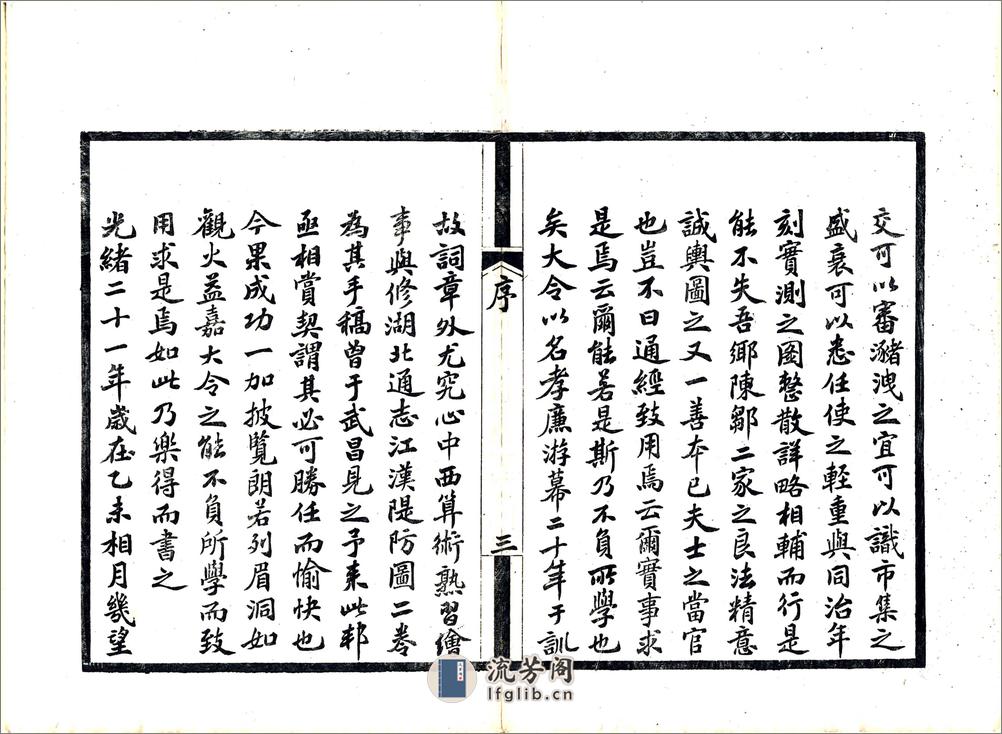 交可以審瀦洩之宜可以識市集之
盛衰可以悉任使之輕重與同治年
刻實測之圖整散詳略相輔而行是
能不失吾鄉陳鄒二家之良法精意
誠輿圖之又一善本已夫士之當官
也豈不曰通經致用焉云爾實事求
是焉云爾能若是斯乃不負所學也
矣大令以名孝廉游幕二十年于訓
序
三
故詞章外尤究心中西算術熟習繪
事與修湖北通志江漢隄防圖二卷
為其手稿曾于武昌見之予來此邦
亟相賞契謂其必可勝任而愉快也
今果成功一加披覽朗若列眉洞如
觀火益嘉大令之能不負所學而致
用求是焉如此乃樂得而書之
光緒二十一年歲在乙未相月幾望
流芳阁
lfglib.cn